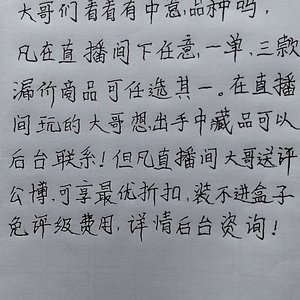 大哥们看看有中意,品种吗,
凡在直播间下任意,一单、三款
漏价商品可任选其一。在直播
间玩的大哥想,出手中藏品可以
后台联系!但凡直播间大哥送评
公博、可享最优折扣,装不进盒子
免评级费用,详情后台咨询!